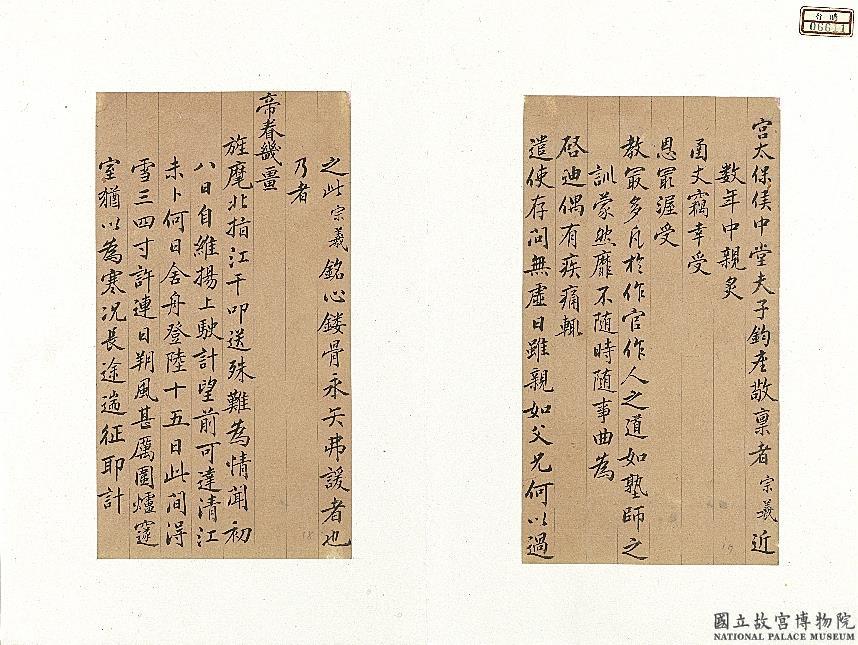 宮太保侯中堂夫子鈞座敬稟者宗羲近
數年中親炙
函丈竊幸受
恩最渥受
教最多凡於作官作人之道如塾師之
訓蒙然靡不隨時隨事曲為
啓迪偶有疾痛輒
遣使存問無虛日雖親如父兄何以過
之此宗羲銘心鏤骨永矢弗諼者也
乃者
帝眷畿畺
旌麾北指江干叩送殊難為情聞初
八日自維揚上駛計望前可達清江
未卜何日舍舟登陸十五日此間得
雪三四寸許連日朔風甚厲圍爐邃
室猶以為寒况長途遄征耶計
17
18
06611
國立故宮博物院
NATIONAL PALACE MUSEUM